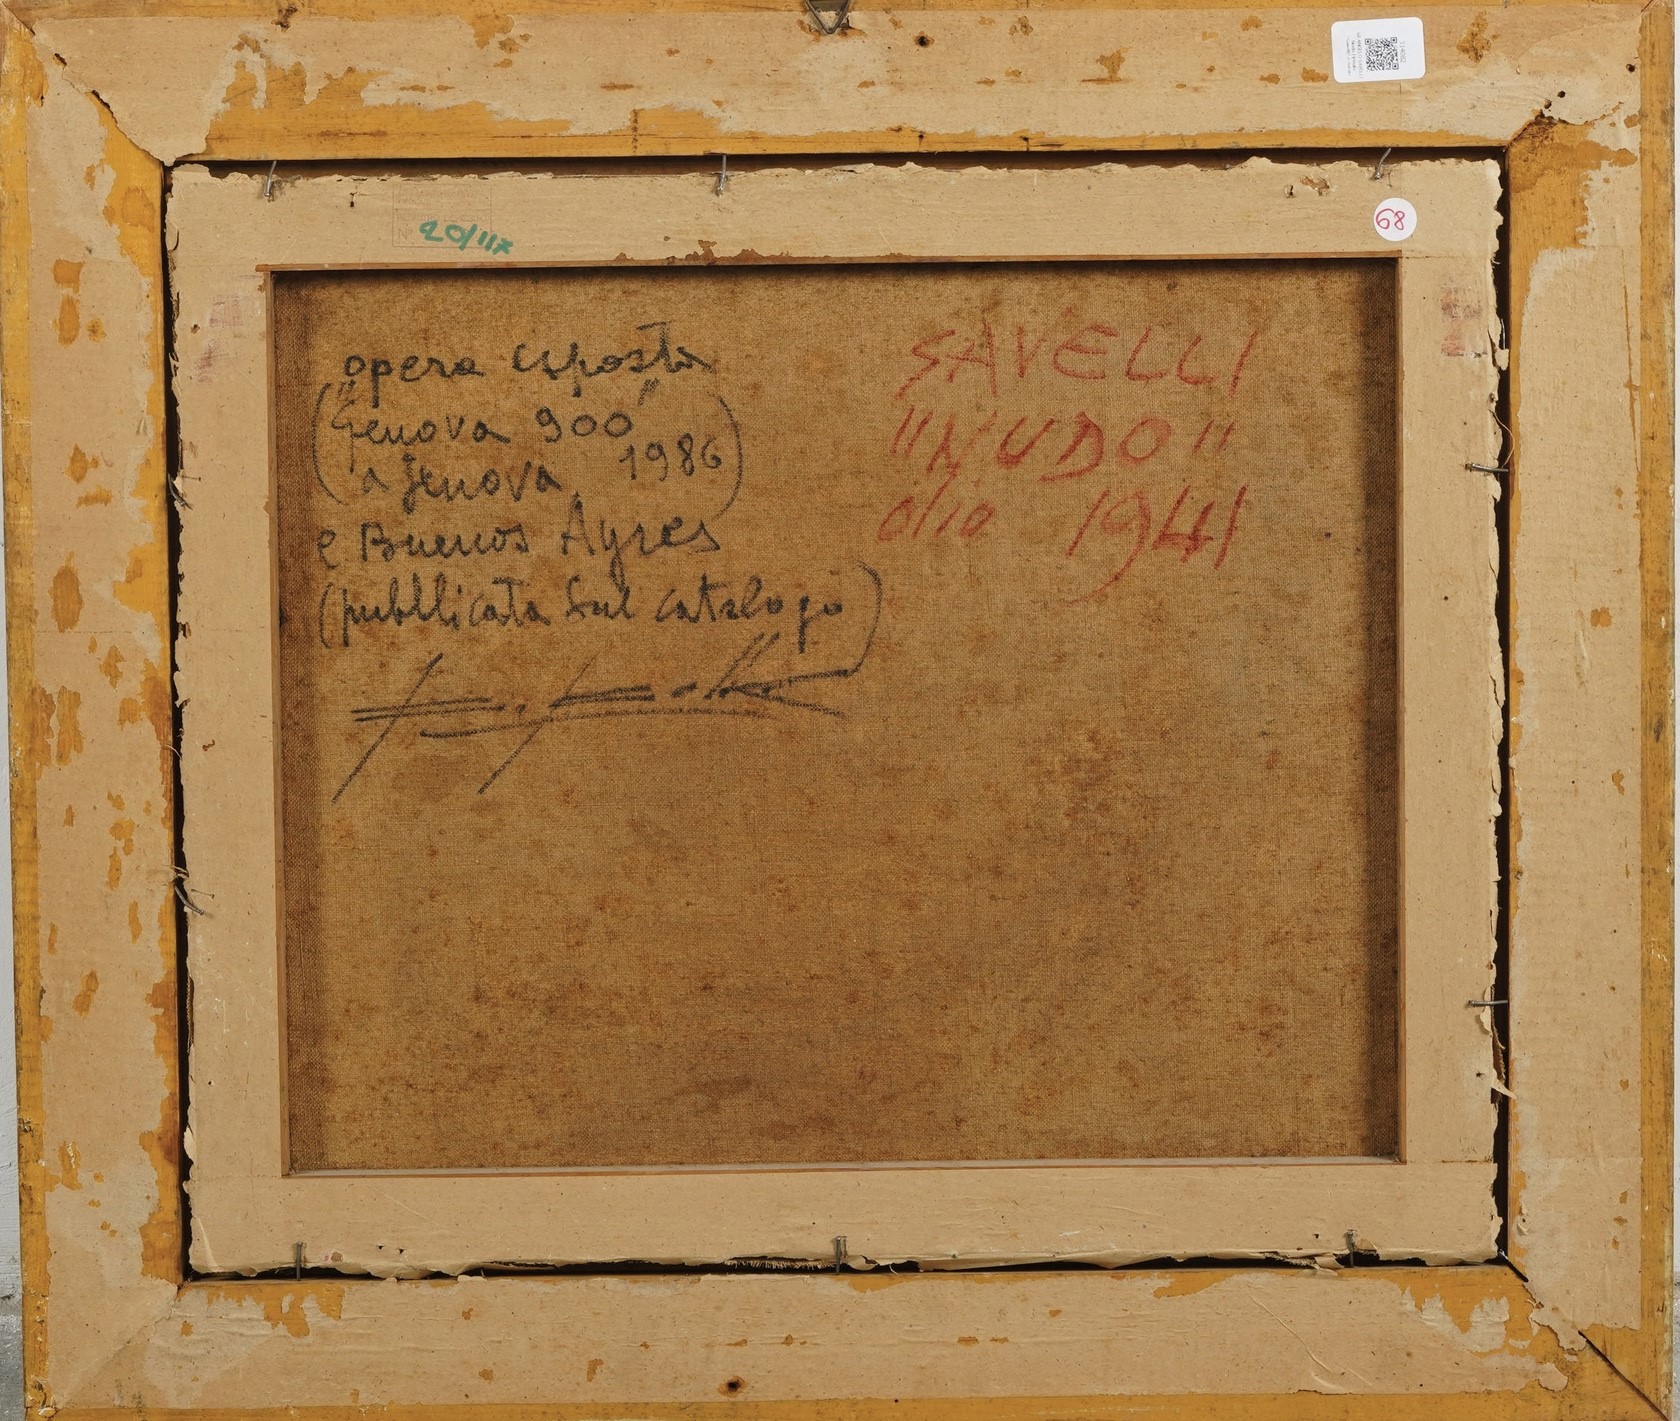 20/117
68
opera esposta
("Genova 900"
a Genova 1986)
e Buenos Ayres
(pubblicata sul catalogo)
SAVELLI
"NUDO"
olio 1941